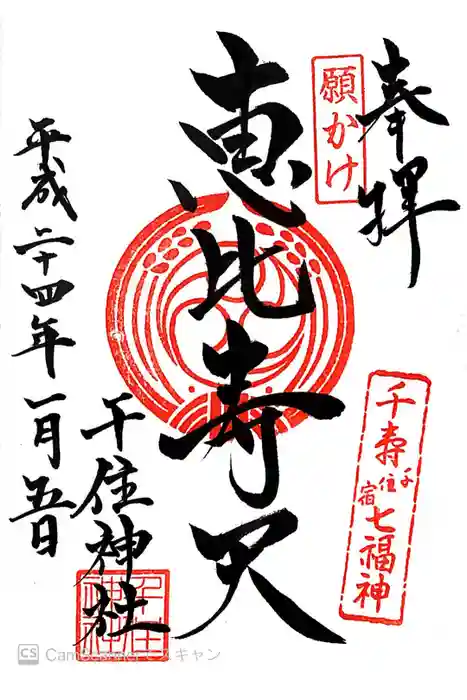 奉拝
願かけ
千寿七福神
千住宿
恵比寿天
千住神社
平成二十四年一月五日
CS CamScanner でスキャン